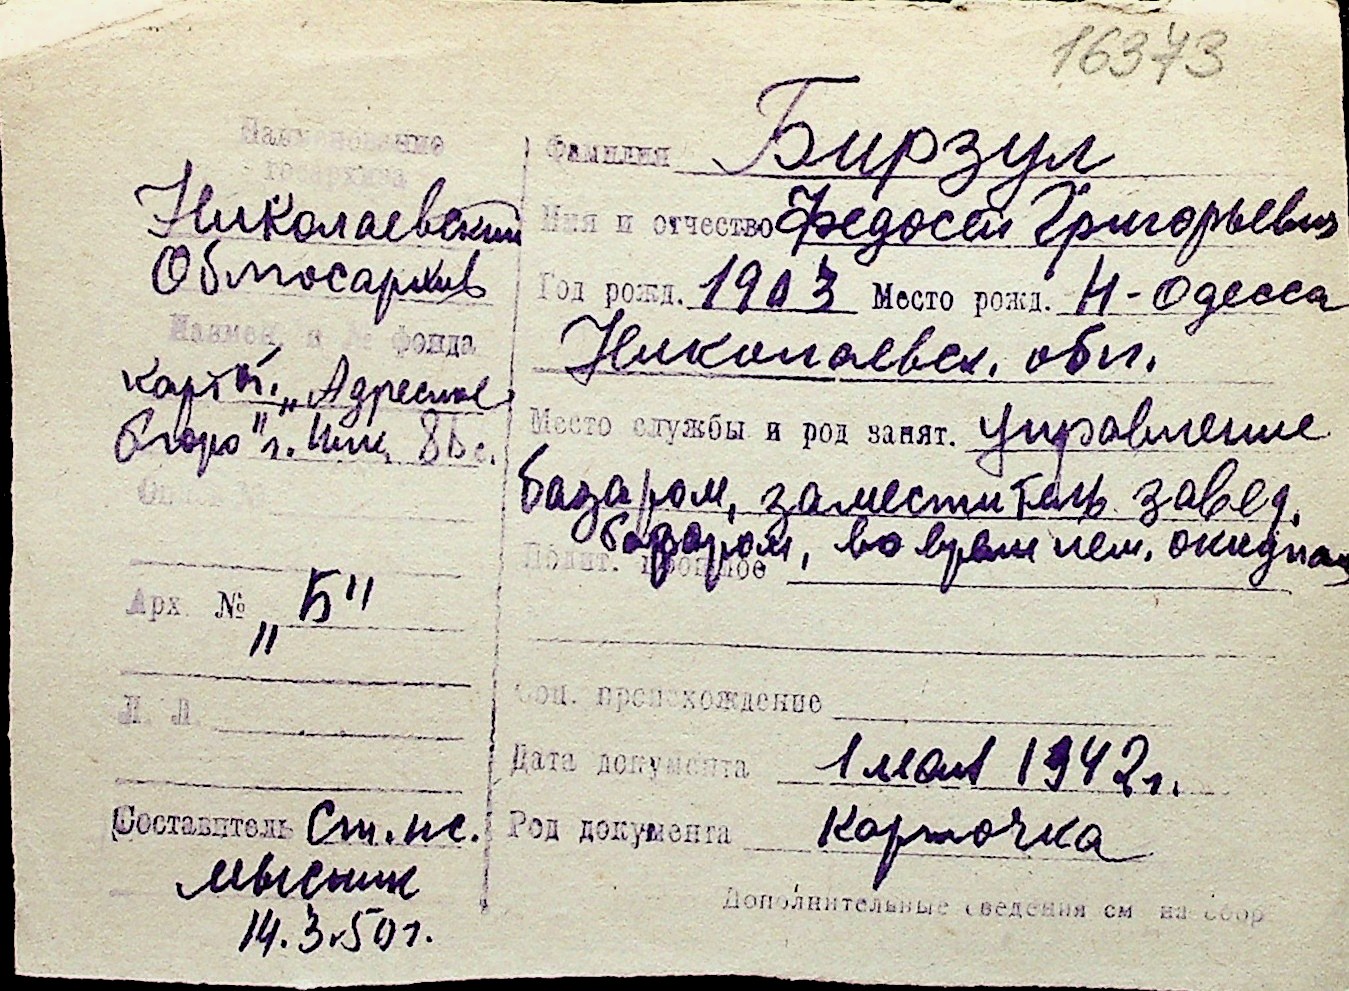 16373
Наименование
госархива
Николаевский
Облгосархив
Наимен. и № фонда
карт. „Адресное
бюро" г. Ник.
Опись №
Арх. № „Б"
Л. Л.
Составитель Ст. нс.
Мысник
14.3.50 г.
Фамилия Бирзул
Имя и отчество Федосей Григорьевич
Год рожд. 1903 Место рожд. Н-Одесса
Николаевск. обл.
Место службы и род занят. управление
базаром, заместитель завед.
базаром, во время нем. оккупац
Полит. прошлое
Соц. происхождение
Дата документа 1 мая 1942 г.
Род документа Карточка
Дополнительные сведения см на обор